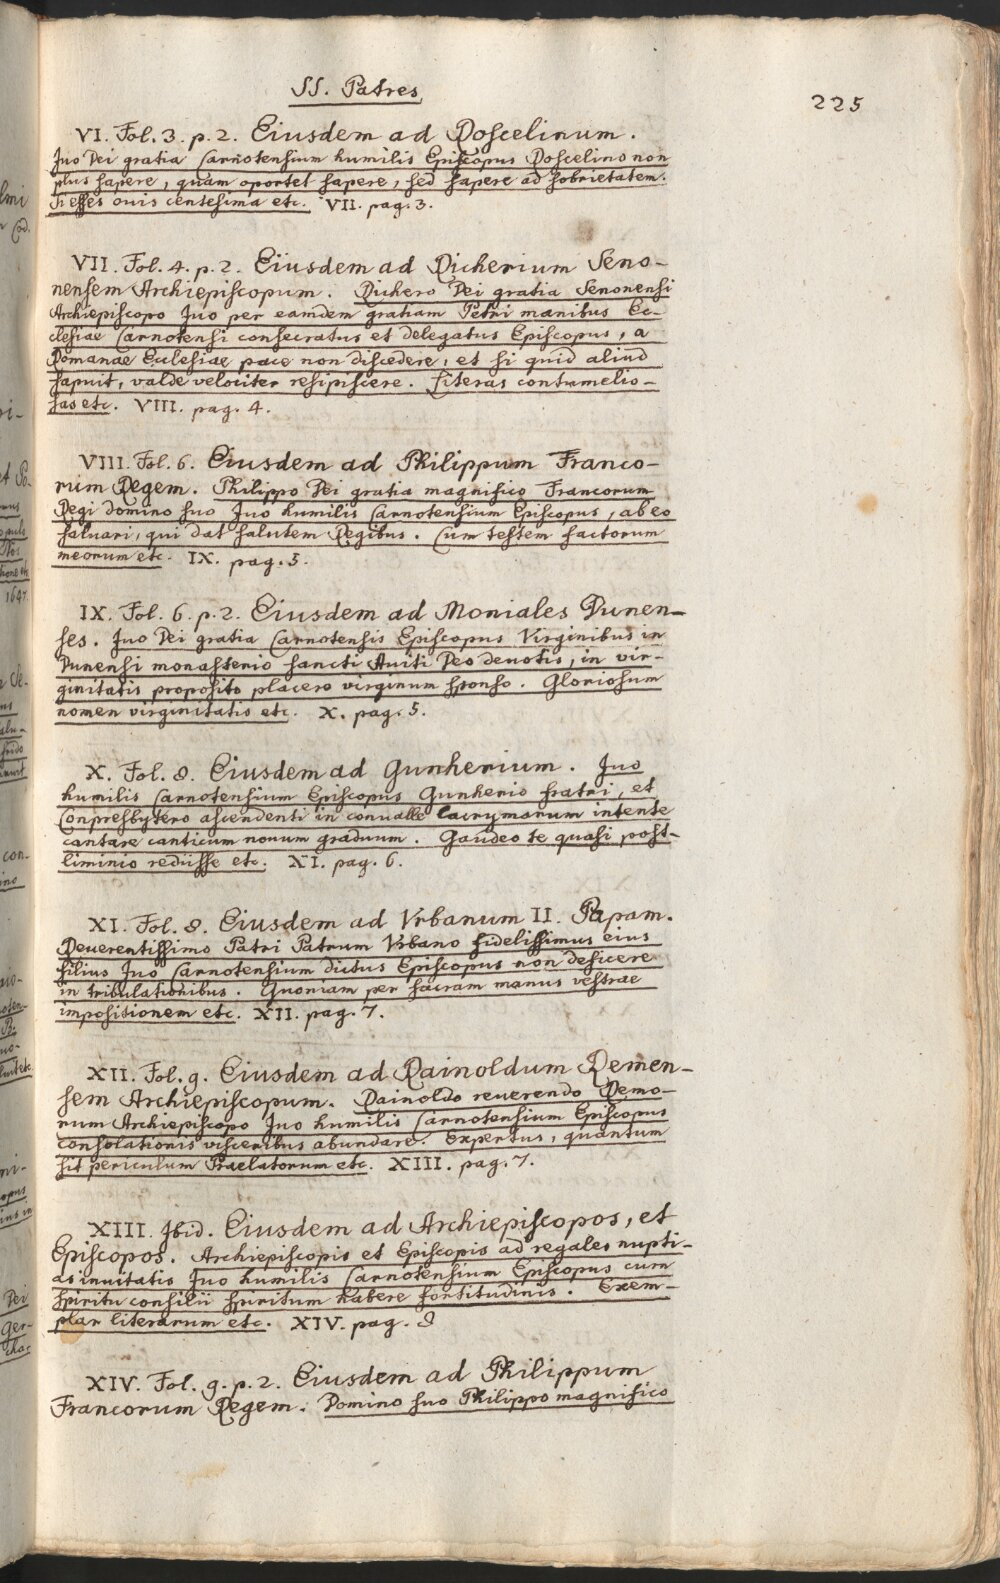 SS. Patres
225
VI. Fol. 3. p. 2. Eiusdem ad Roscelinum.
Iuo Dei gratia Carnotensium humilis Episcopus Roscelino non
plus sapere, quam oportet sapere, sed sapere ad sobrietatem.
Si esses ouis centesima etc. VII. pag. 3.
VII. Fol. 4. p. 2. Eiusdem ad Richerium Seno-
nensem Archiepiscopum. Richero Dei gratia Senonensi
Archiepiscopo Iuo per eamdem gratiam Petri manibus Ec-
clesiae Carnotensi consecratus et delegatus Episcopus, a
Romanae Ecclesiae pace non discedere, et si quid aliud
sapuit, valde velociter resipiscere. Literas contumelio-
sas etc. VIII. pag. 4.
VIII. Fol. 6. Eiusdem ad Philippum Franco-
rum Regem. Philippo Dei gratia magnifico Francorum
Regi domino suo Iuo humilis Carnotensium Episcopus, ab eo
saluari, qui dat salutem Regibus. Cum testem factorum
meorum etc. IX. pag. 5.
IX. Fol. 6. p. 2. Eiusdem ad Moniales Dunen-
ses. Iuo Dei gratia Carnotensis Episcopus Virginibus in
Dunensi monasterio sancti Auiti Deo deuotis, in vir-
ginitatis proposito placere virginum sponso. Gloriosum
nomen virginitatis etc. X. pag. 5.
X. Fol. 8. Eiusdem ad Gunherium. Iuo
humilis Carnotensium Episcopus Gunherio fratri, et
Conpresbytero ascendenti in conualle lacrymarum intente
cantare canticum nouum graduum. Gaudeo te quasi post-
liminio rediisse etc. XI. pag. 6.
XI. Fol. 8. Eiusdem ad Vrbanum II. Papam.
Reuerentissimo Patri Patrum Vrbano fidelissimus eius
filius Iuo Carnotensium dictus Episcopus non deficere
in tribulationibus. Quoniam per sacram manus vestrae
impositionem etc. XII. pag. 7.
XII. Fol. 9. Eiusdem ad Rainoldum Remen-
sem Archiepiscopum. Rainoldo reuerendo Remo-
rum Archiepiscopo Iuo humilis Carnotensium Episcopus
consolationis visceribus abundare. Expertus, quantum
sit periculum Praelatorum etc. XIII. pag. 7.
XIII. Ibid. Eiusdem ad Archiepiscopos, et
Episcopos. Archiepiscopis et Episcopis ad regales nupti-
as inuitatis Iuo humilis Carnotensium Episcopus cum
spiritu consilii spiritum habere fortitudinis. Exem-
plar literarum etc. XIV. pag. 8
XIV. Fol. 9. p. 2. Eiusdem ad Philippum
Francorum Regem. Domino suo Philippo magnifico